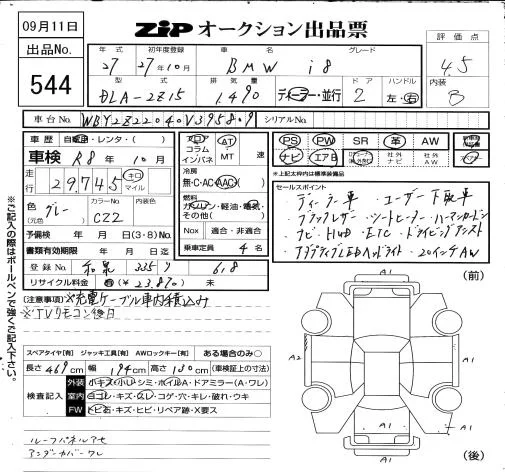 09月11日
ZIP オークション出品票
出品No.
544
評価点
4.5
内装
B
年式 初年度登録 車名 グレード
27 27年10月 BMW i8
型式 排気量 ドア ハンドル
DLA-2Z15 1,490 ディーラー・並行 2 左・右
車台No. WBY2Z22040V395809 シリアルNo.
車歴 自家用・レンタ・( )
車検 R8年10月
走行 29,745 キロ マイル
色 (元色) グレー カラーNo. C2Z 内装色
予備検 年 月 日(3・8)No.
書類有効期限 年 月 日
登録No. 和泉 335 ソ 618
リサイクル料金 (¥23,870) 未
フロア コラム インパネ AT MT 速
冷房
無・C・AC・AAC
燃料
ガソリン・軽油・電気・その他( )
Nox 適合・非適合
乗車定員 4名
PS PW SR 革 AW
ナビ エアB 社外ナビ 社外AW
*上記太枠内は標準装備品
セールスポイント
ディーラー車 ・ユーザー下取車
・ブラックレザー ・シートヒーター ・ハーマンカードン
・ナビ ・HUD ・ETC ・ドライビングアシスト
・アダプティブLEDヘッドライト ・20インチAW
(注意事項)※充電ケーブル車内積込み
※TVリモコン後日
スペアタイヤ[有] ジャッキ工具[有] AWロックキー[有] ある場合のみ○
長さ469cm 幅194cm 高さ130cm (車検証上の寸法)
検査記入
外装 小キズ・小凹・シミ・ボイルA・ドアミラー(A・ワレ)
室内 ヨゴレ・キズ・スレ・コゲ・穴・キレ・破れ・ウキ
FW トビ石・キズ・ヒビ・リペア跡・X要ス
ルーフパネルアセ
アンダーカバーワレ
※ご記入の際はボールペンで強くご記入下さい。
(前)
A1
A1
A2
A1
A1
(後)